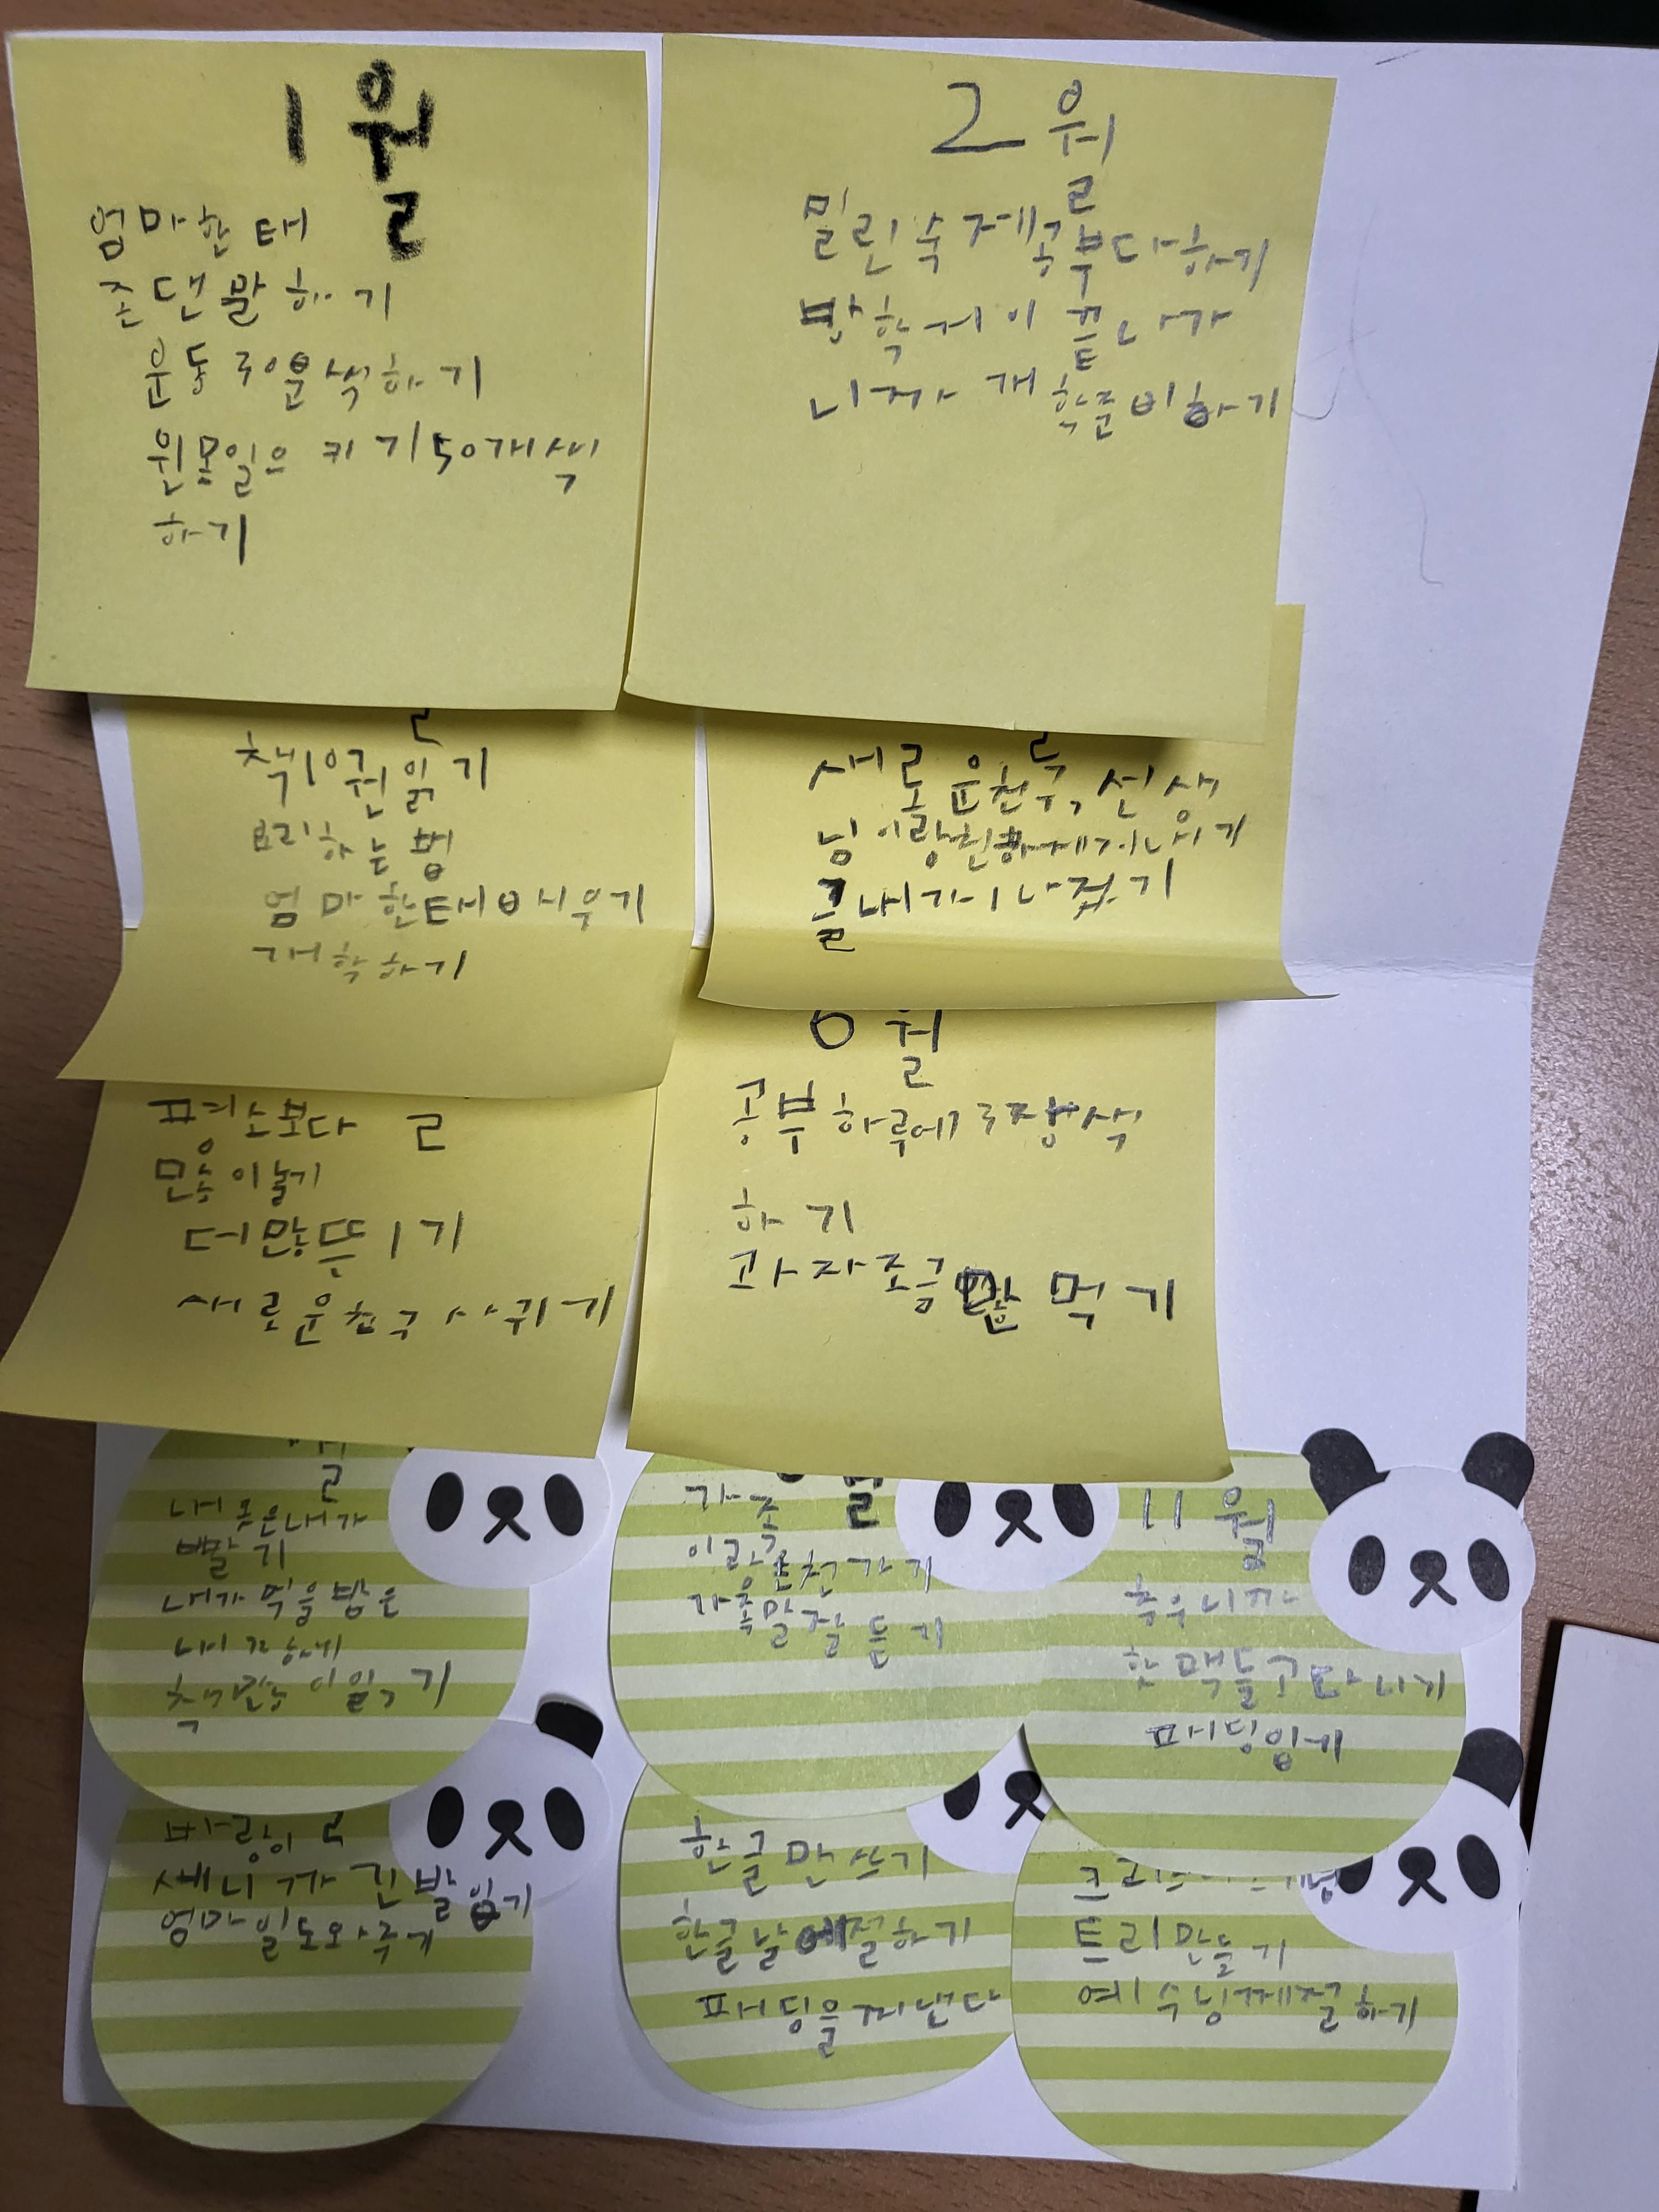 1월
엄마한태
존댄말하기
운동 30분씩하기
하기
2월
밀린숙제공부다하기
방학시이 끝나가
니까 개학준비하기
책10권읽기
요리하는법
엄마한태배우기
개학하기
새로운친구, 선생
님이랑친하게지내기
평소보다
많이놀기
더많이
새로운친구사귀기
6월
공부하루에3장씩
하기
과자조금만 먹기
월
내옷은내가
빨기
내가먹을밥은
책많이읽기
가족
이랑온천가기
가족말잘듣기
11월
추우니까
핫팩들고다니기
패딩입기
바람이
세니까 긴발입기
엄마일도와주기
한글만쓰기
한글날에절하기
패딩을꺼낸다
트리만들기
예수님께절하기